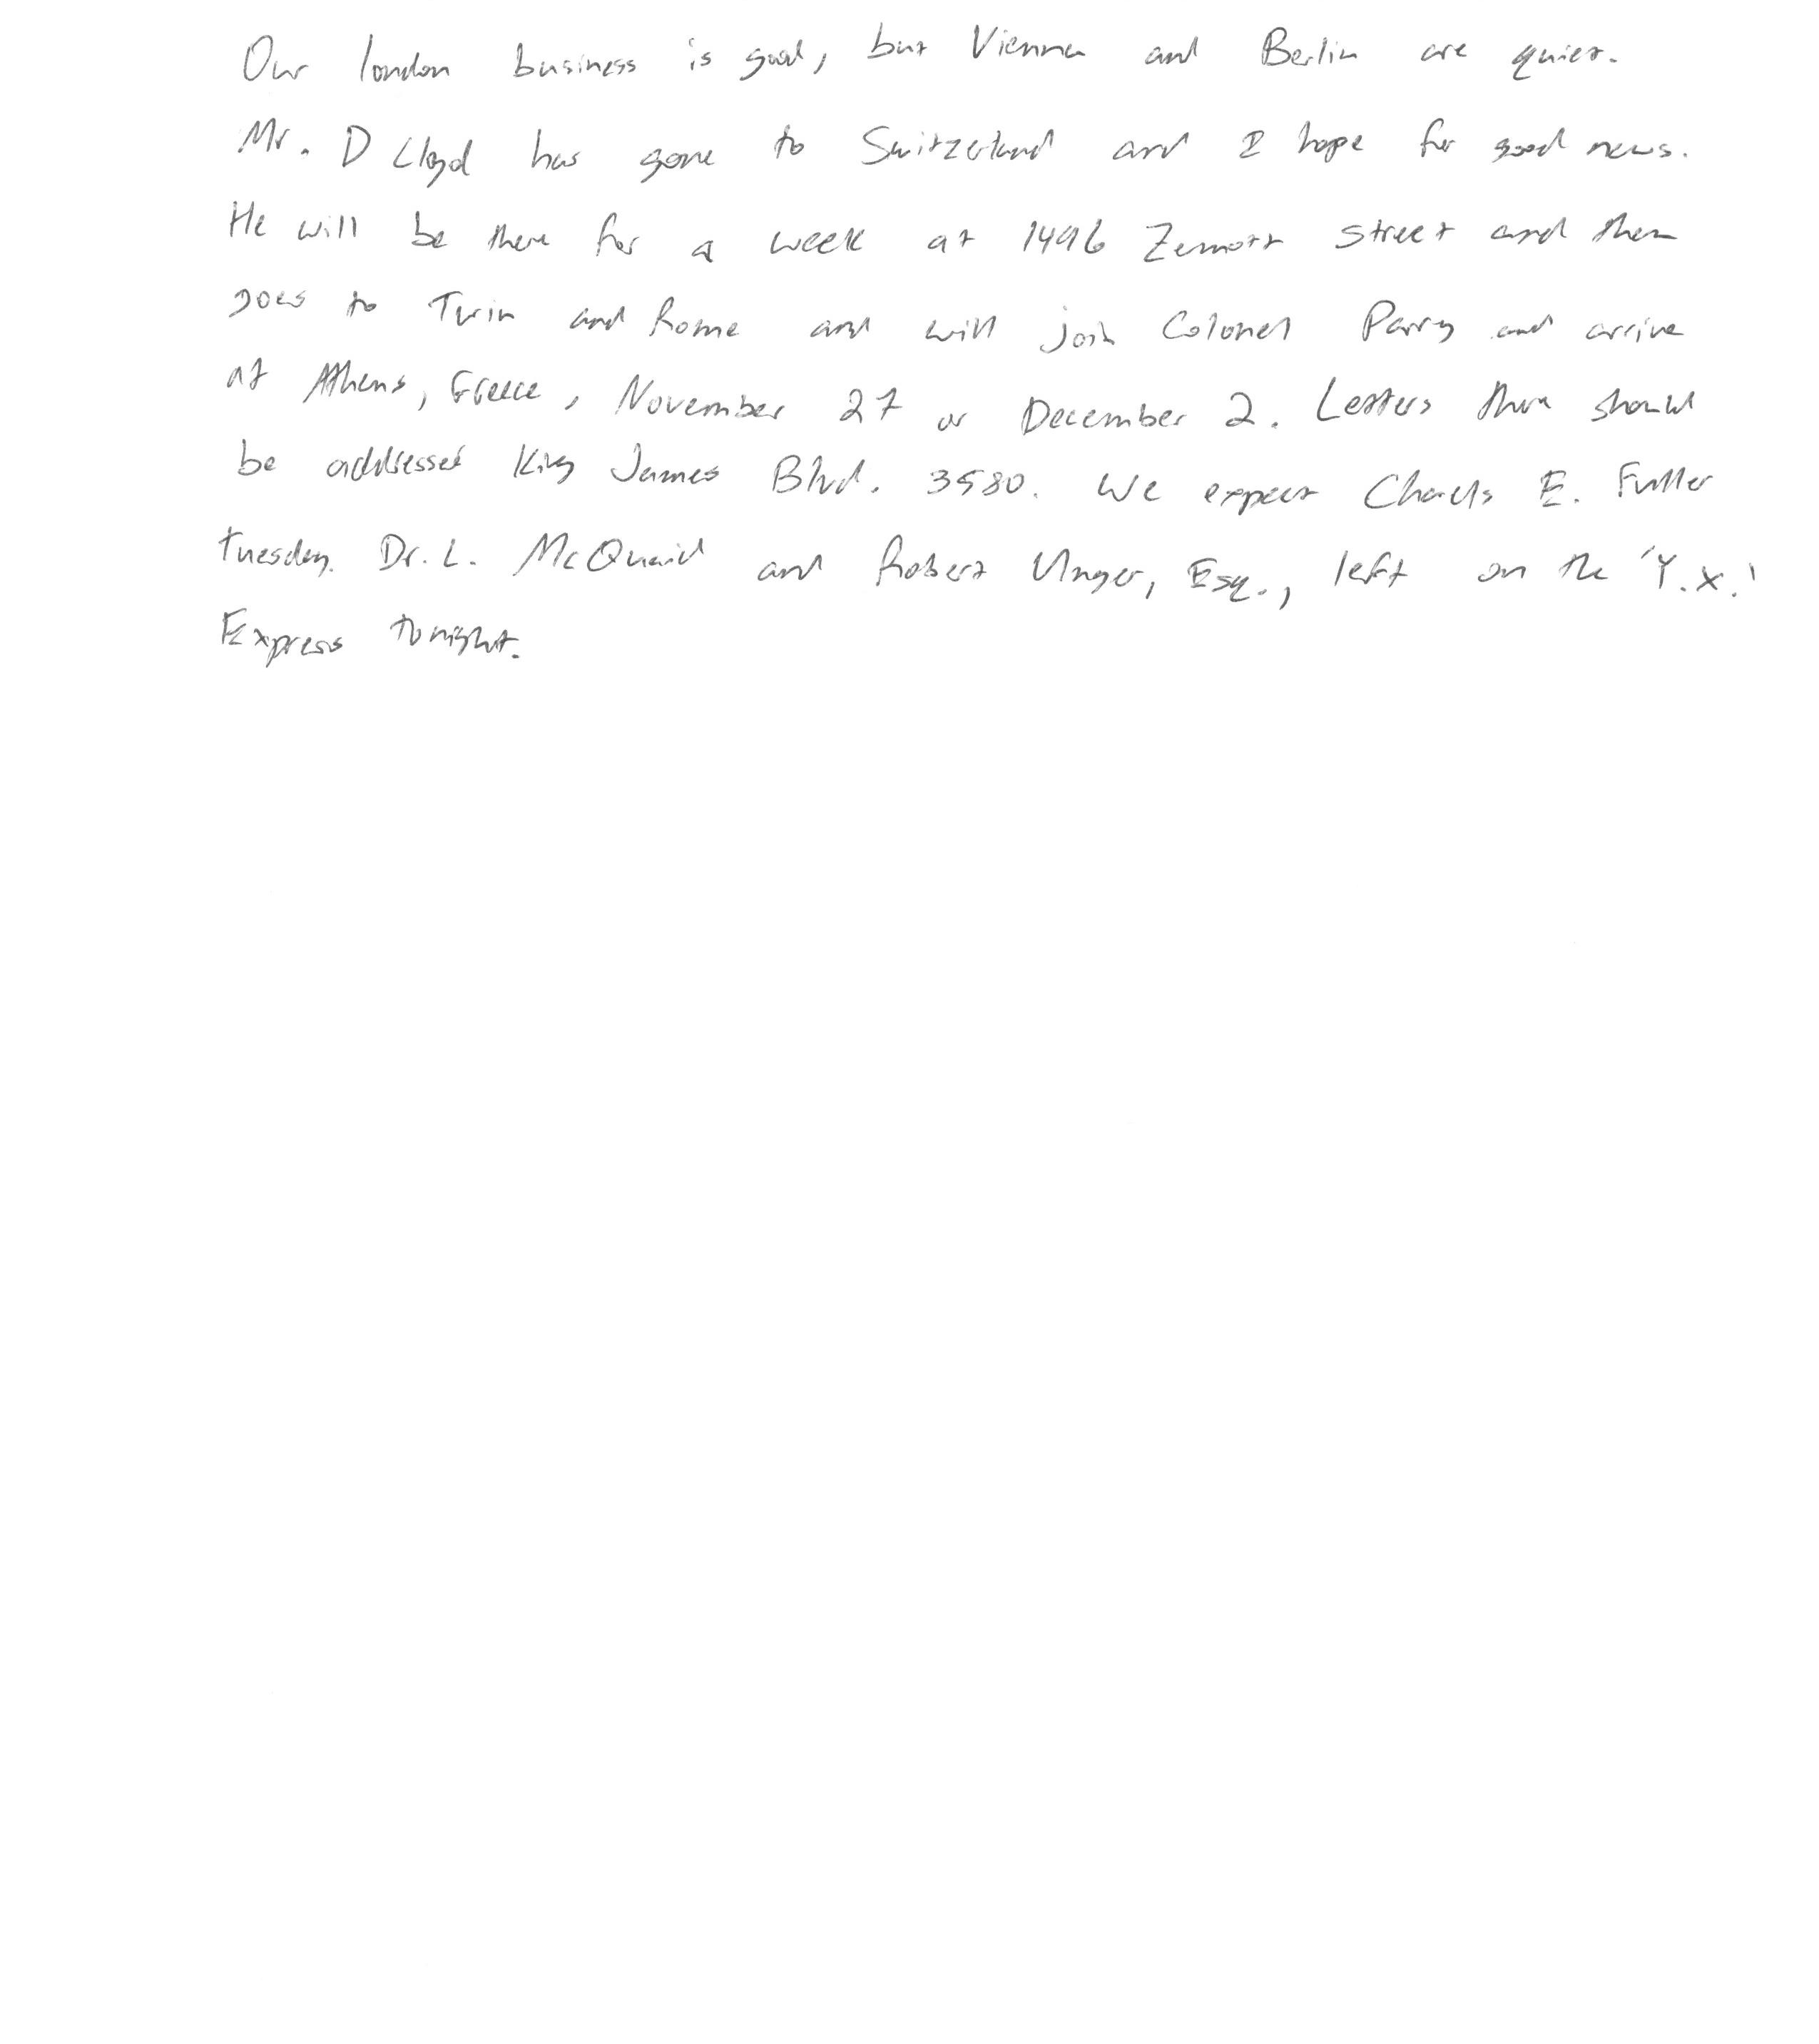 Our london business is good, but Vienna and Berlin are quiet.
Mr. D Lloyd has gone to Switzerland and I hope for good news.
He will be there for a week at 1496 Zemott street and then
goes to Turin and Rome and will join Colonel Parry and arrive
at Athens, Greece, November 27 or December 2. Letters there should
be addressed King James Blvd. 3580. We expect Charels E. Fuller
tuesday. Dr. L. McQuaid and Robert Unger, Esq., left on the 'Y.X.'
Express tonight.